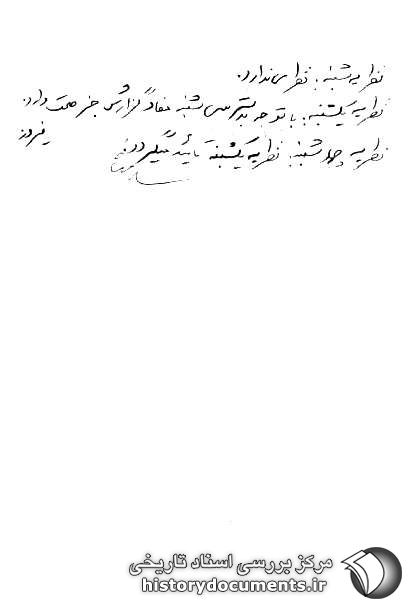 نظریه شنبه: نظری ندارد.
نظریه یکشنبه: با توجه به دسترسی شنبه مفاد گزارش خبر صحت دارد.
نظریه چهارشنبه: نظریه یکشنبه تایید میگردد.
مرکز بررسی اسناد تاریخی
historydocuments.ir